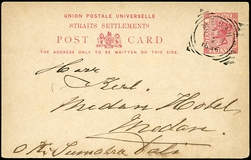 UNION POSTALE UNIVERSELLE
STRAITS SETTLEMENTS
POST CARD
THE ADDRESS ONLY TO BE WRITTEN ON THIS SIDE.
Herr
Medan Hotel
Medan
Sumatra Deli